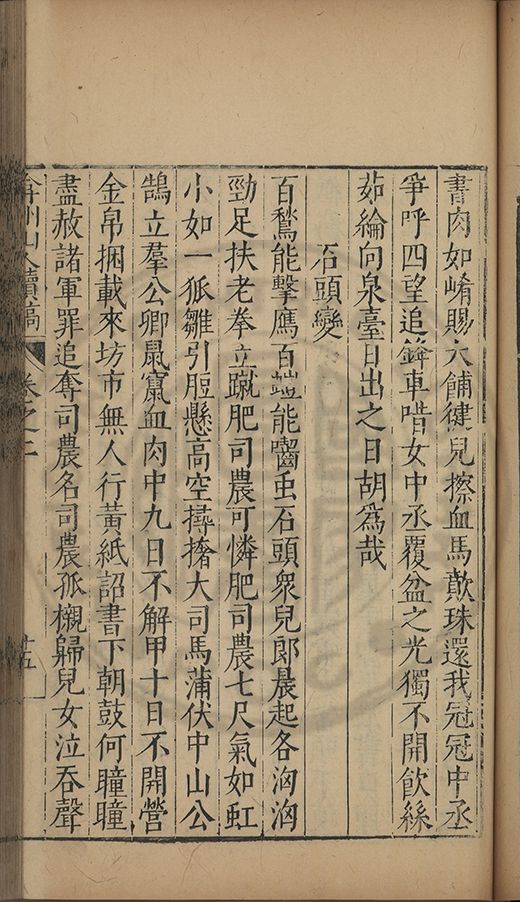 書肉如崤賜大餔健兒擦血馬歕珠還我冠冠中丞
爭呼四望追鋒車唶女中丞覆盆之光獨不開飲絲
茹綸向泉臺日出之日胡爲哉
石頭變
百鶖能擊鷹百螘能嚙虫石頭衆兒郎晨起各洶洶
勁足扶老拳立蹴肥司農可憐肥司農七尺氣如虹
小如一狐雛引脰懸高空撏撦大司馬蒲伏中山公
鵠立羣公卿鼠竄血肉中九日不解甲十日不開營
金帛捆載來坊市無人行黃紙詔書下朝鼓何瞳瞳
盡赦諸軍罪追奪司農名司農孤櫬歸兒女泣吞聲
弇州山人續稿
卷之二
十五